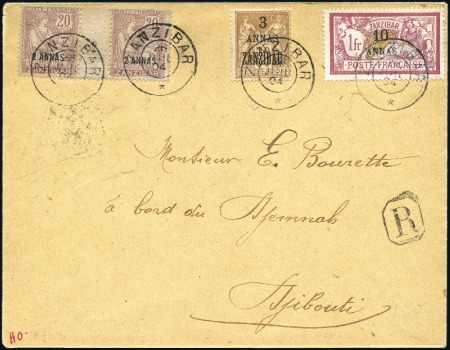 20 20 3 ZANZIBAR 10
2 ANNAS 2 ANNAS ANNAS 1fr ANNAS
ZANZIBAR ZANZIBAR ZANZIBAR POSTE FRANÇAISE
ZANZIBAR 04
ZANZIBAR 04
ZANZIBAR 04
04
Monsieur E. Bourette
à bord du Djemnah
R
Djibouti
HO